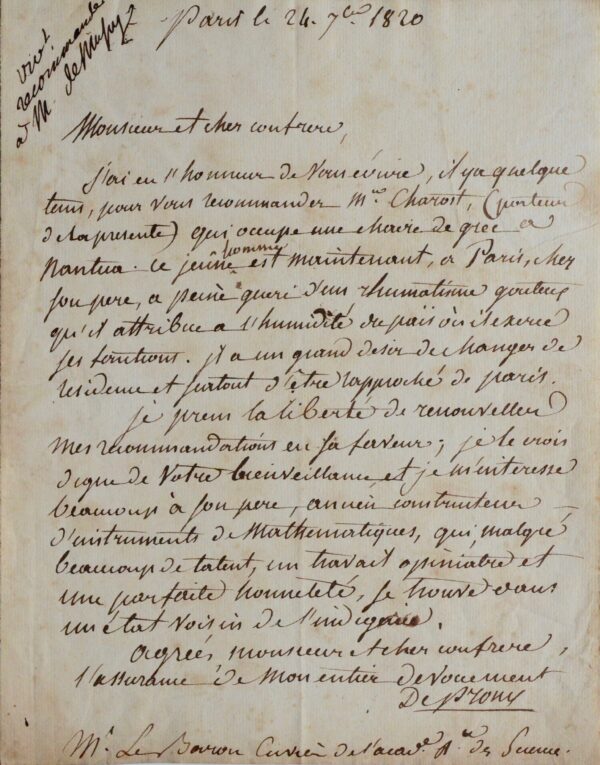 Paris le 24. 7bre 1820
vivt
recommandé
à M. de Mussy
Monsieur et cher confrere,
j'ai eu l'honneur de vous ecrire, il y a quelque
tems, pour vous recommander Mr. Charost, (porteur
de la presente) qui occupe une chaire de grec a
Nantua. ce jeune homme est maintenant, a Paris, chez
son pere, a peine gueri d'un rhumatisme gouteux
qu'il attribue a l'humidité du païs où il exerce
ses fonctions. il a un grand desir de changer de
residence et surtout d'être rapproché de paris.
je prens la liberté de renouveller
mes recommandations en sa faveur; je le crois
digne de votre bienveillance et je m'interesse
beaucoup à son pere, ancien constructeur
d'instruments de Mathematiques, qui, malgré
beaucoup de talent, un travail opiniatre et
une parfaite honneteté, se trouve dans
un état voisin de l'indigence.
agréés monsieur et cher confrere,
l'assurance de mon entier devouement
De Prony
Mr. Le Baron Cuvier de l'acadie. Rle. des Sciences.